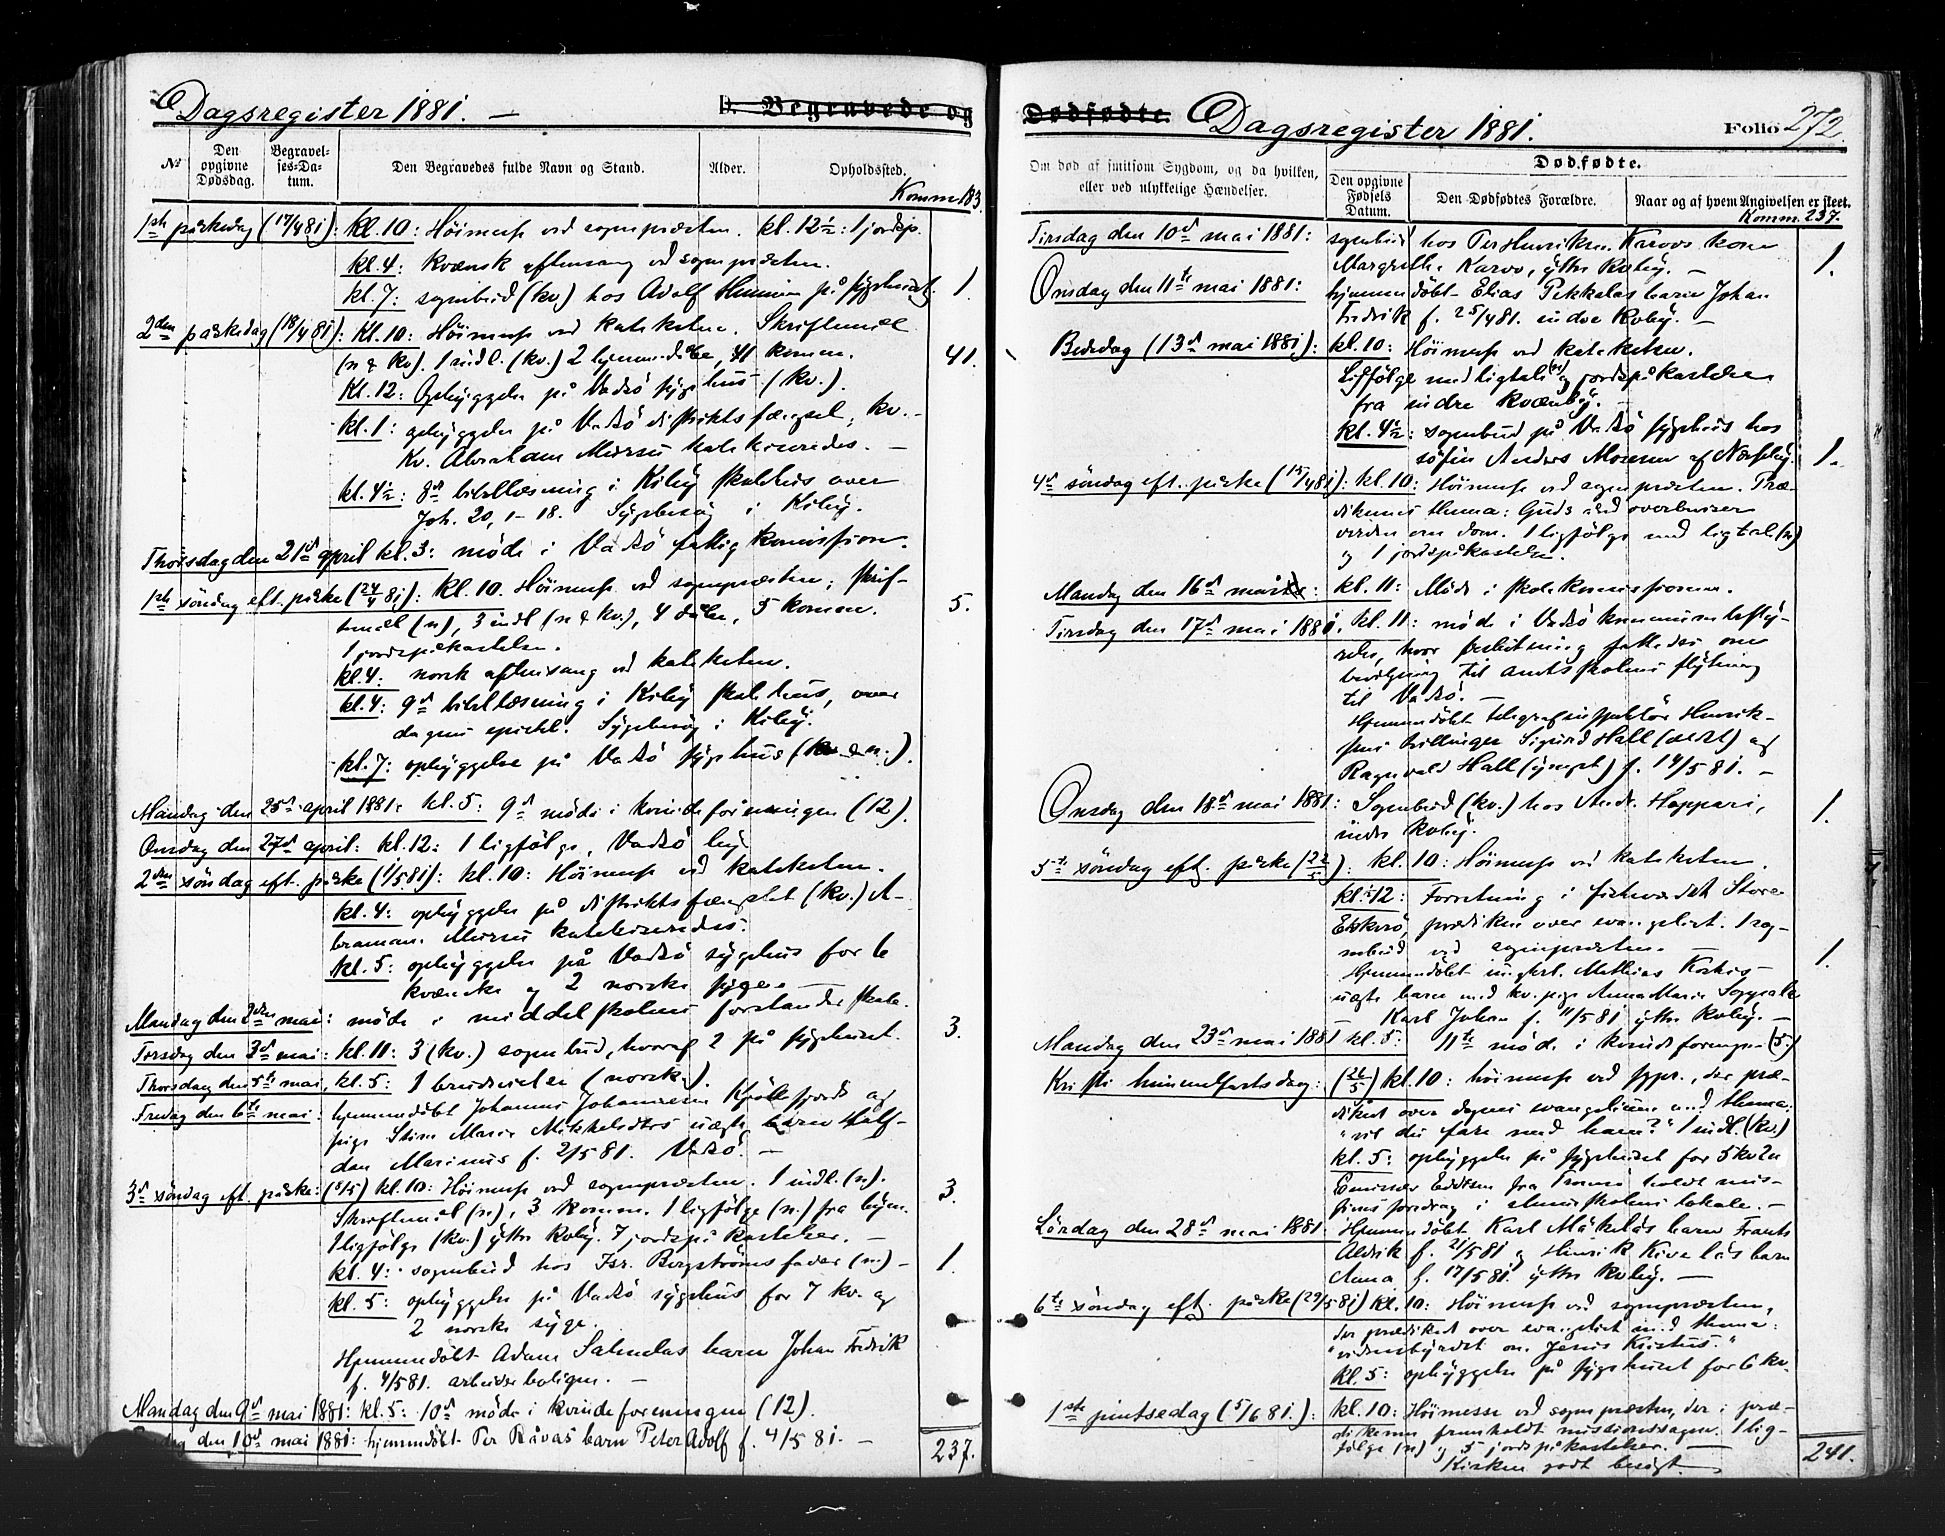 Dagsregister 1881. —
D. Begravede og
№
Den opgivne Dødsdag.
Begravelses-Datum.
Den Begravedes fulde Navn og Stand.
Alder.
Opholdssted.
Komm. 183.
1ste påskedag (17/4 81): kl. 10: Høimesse ved sognepræsten. kl. 12½: 1 jordsp.
kl. 4: kvænsk aftensang ved sognepræsten.
kl. 7: sognebud (kv.) hos Adolf på sygehuset. 1.
2den påskedag (18/4 81): Kl. 10: Høimesse ved kateketen. Skriftemål
(n & kv). 1 indl. (kv.) 2 hjemmedøbte, 41 komm. 41.
Kl. 12: Opbyggelse på Vadsö sygehus (kv.).
kl. 1: opbyggelse på Vadsö distriktsfængsel, kv. —
Kv. Abraham Mursu katekiseredes. —
kl. 4½: 8de bibellæsning i Kiby skolehus over
Joh. 20, 1–18. Sygebesøg i Kiby.
Thorsdag den 21de april kl. 3: møde i Vadsö fattigkomission.
1ste søndag eft. påske (24/4 81): kl. 10. Höimesse ved sognepræsten; skrif-
temål (n), 3 indl (n & kv.), 4 døbte, 5 komm. 5.
1 jordspåkastelse.
kl. 4: norsk aftensang ved kateketen.
kl. 4: 9de bibellæsning i Kiby skolehus, over
dagens epistel. Sygebesøg i Kiby.
kl. 7: opbyggelse på Vadsö sygehus (kv. & n.).
Mandag den 25de april 1881: kl. 5: 9de möde i kvindeforeningen (12).
Onsdag den 27de april: kl. 12: 1 ligfölge, Vadsö by.
2den søndag eft. påske (1/5 81): kl. 10: Höimesse ved kateketen.
kl. 4: opbyggelse på distriktsfængslet (kv.) A-
braham Mursu katekiseredes.
kl. 5: opbyggelse på Vadsö sygehus for 6
kvænske og 2 norske syge. —
Mandag den 2den mai: möde i middelskolens forstanderskab.
Torsdag den 3de mai: kl. 11: 3 (kv.) sognebud, hvoraf 2 på sygehuset. 3.
Thorsdag den 5te mai, kl. 5: 1 brudevielse (norsk).
Fredag den 6te mai: hjemmedöbt Johannes Johannesen Kjöllefjords og
pige Marie Mikkelsdtrs uægte barn Half-
dan Marinus f. 2/5 81. Vadsö. —
3de søndag eft. påske: (8/5) kl. 10: Höimesse ved sognepræsten. 1 indl. (n).
Skriftemål (n), 3 komm. 1 ligfölge (n.) fra byen. 3.
1 ligfölge (kv.) yttre Kvby. 7 jordspåkastelser. —
kl. 4: sognebud hos Isr. Bergströms fader (n.) — 1.
kl. 5: opbyggelse på Vadsö sygehus for 7 kv. og
2 norske syge.
Hjemmedöbt Adam Salmelas barn Johan Fredrik
f. 4/5 81. arbeiderboligen. —
Mandag den 9de mai 1881: kl. 5: 10de möde i kvindeforeningen (12).
den 10de mai 1881: hjemmedöbt Per Råvas barn Peter Adolf f. 4/5 81. —
237.
Dødfødte.
Dagsregister 1881.
Folio 272.
Om død af smitsom Sygdom, og da hvilken, eller ved ulykkelige Hændelser.
Dødfødte.
Den opgivne Fødsels Datum.
Den Dødfødtes Forældre.
Naar og af hvem Angivelsen er skeet.
Komm. 237.
Tirsdag den 10de mai 1881: sognebud hos Per Henriksen Karvos kone
Margrethe Karvo, yttre Kvby. — 1.
Onsdag den 11te mai 1881: hjemmedöbt Elias Pekkalas barn Johan
Fredrik f. 25/4 81. indre Kvby. —
Bededag (13de mai 1881): kl. 10: Höimesse ved kateketen.
Ligfölge med ligtale (n) og jordspåkastelse
fra indre Kvænby. —
kl. 4½: sognebud på Vadsö sygehus hos
söfin Anders Monsen af Næsseby. 1.
4de søndag eft. påske (15/4 81): kl. 10: Höimesse ved sognepræsten. Præ-
dikenens thema: Guds ånd overbeviser
verden om dom. 1 ligfölge med ligtale (n)
og 1 jordspåkastelse.
Mandag den 16de mai: kl. 11: Möde i skolekomissionen.
Tirsdag den 17de mai 1881. kl. 11: möde i Vadsö kommunebesty-
relse, hvor beslutning fattedes om
bevilgning til amtsskolens flytning
til Vadsö. —
Hjemmedöbt telegrafinspektör Henrik-
sens tvillinger Sigurd Hall (ældst) og
Ragnvald Hall (yngst) f. 14/5 81. —
Onsdag den 18de mai 1881: Sognebud (kv.) hos Andr. Hoppari,
indre Kvby. 1.
5te søndag eft. påske (22/5): kl. 10: Höimesse ved kateketen.
kl. 12: Forretning i fiskeværdet Store
Ekkerö, prædiken over evangeliet. 1 sog-
nebud ved sognepræsten. — 1.
Hjemmedöbt ungkarl Mathias Koskis
uægte barn med kv. pige Anna Marie Soppala
Karl Johan f. 11/5 81 yttre Kvby. —
Mandag den 23de mai 1881 kl. 5: 11te möde i kvindeforeningen (5.)
Kristi himmelfartsdag: (26/5) kl. 10: höimesse ved sgpr., der præ-
diked over dagens evangelium med thema:
"vil du fare med ham?" 1 indl. (kv.)
kl. 5: opbyggelse på sygehuset for 5 kvæn
Emissær fra Tromsö holdt mis-
sionsforedrag i skolens lokale. —
Lördag den 28de mai 1881: Hjemmedöbt Karl Mäkeläs barn Frants
Aldrik f. 21/5 81 og Henrik Kiveläs barn
Anna f. 17/5 81. yttre Kvby. —
6te søndag eft. påske (29/5 81) kl. 10: Höimesse ved sognepræsten,
der prædiked over evangeliet med thema:
"vidnesbyrdet om Jesus Kristus."
kl. 5: opbyggelse på sygehuset for 6 kv.
1ste pintsedag (5/6 81.): kl. 10: Höimesse ved sognepræsten, der i præ-
dikenen fremholdt missionssagen. 1 lig-
fölge (n) og 5 jordspåkastelser. —
Kirken godt besögt. —
241.